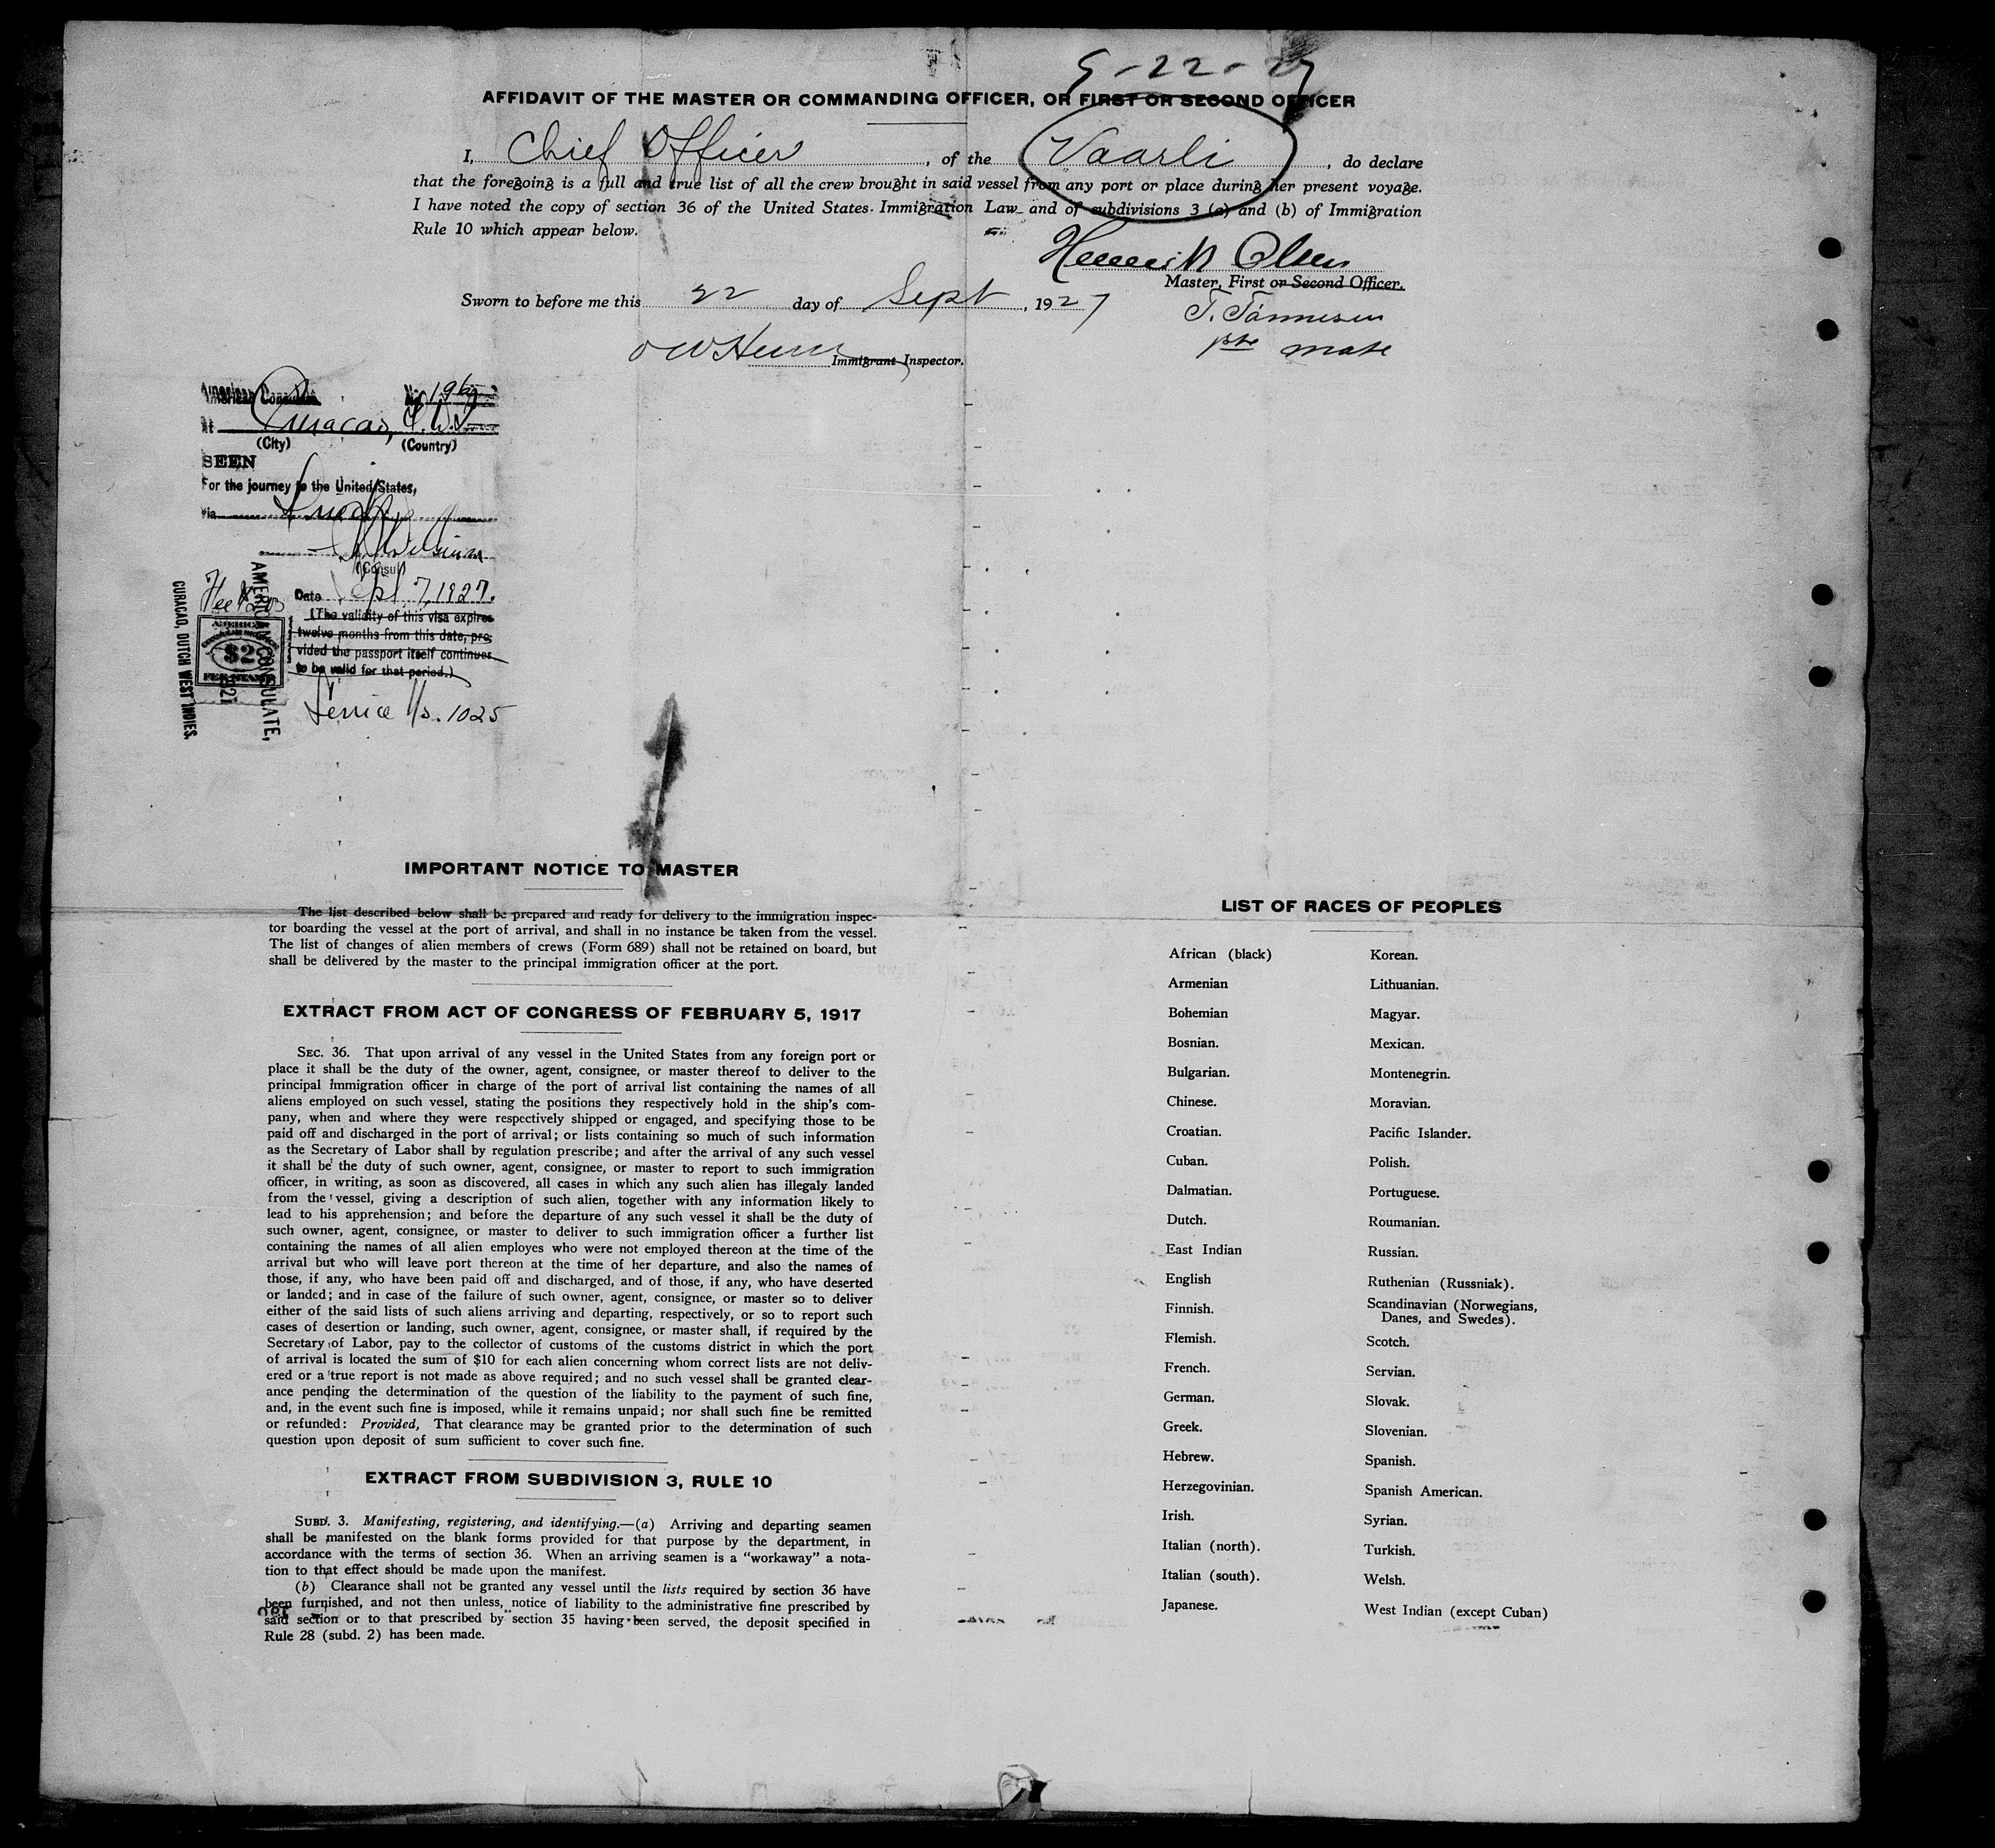 9-22-27
AFFIDAVIT OF THE MASTER OR COMMANDING OFFICER, OR FIRST OR SECOND OFFICER
I, Chief Officer, of the Vaarli, do declare
that the foregoing is a full and true list of all the crew brought in said vessel from any port or place during her present voyage.
I have noted the copy of section 36 of the United States Immigration Law and of subdivisions 3 (a) and (b) of Immigration
Rule 10 which appear below.
Henrik Olsen
Master, First or Second Officer.
Sworn to before me this 22 day of Sept, 1927
T. Tönnesen
1ste mate
Immigrant Inspector.
American Consulate No. 196
At Curacao, D.W.I.
(City) (Country)
SEEN
For the journey to the United States,
Via
(Consul)
Fee $2.00
Date Sept. 7, 1927.
(The validity of this visa expires
twelve months from this date, pro-
vided the passport itself continues
to be valid for that period.)
AMERICAN
$2
FEE STAMP
AMERICAN CONSULATE,
CURACAO, DUTCH WEST INDIES.
Service No. 1025
IMPORTANT NOTICE TO MASTER
The list described below shall be prepared and ready for delivery to the immigration inspec-
tor boarding the vessel at the port of arrival, and shall in no instance be taken from the vessel.
The list of changes of alien members of crews (Form 689) shall not be retained on board, but
shall be delivered by the master to the principal immigration officer at the port.
EXTRACT FROM ACT OF CONGRESS OF FEBRUARY 5, 1917
SEC. 36. That upon arrival of any vessel in the United States from any foreign port or
place it shall be the duty of the owner, agent, consignee, or master thereof to deliver to the
principal immigration officer in charge of the port of arrival list containing the names of all
aliens employed on such vessel, stating the positions they respectively hold in the ship's com-
pany, when and where they were respectively shipped or engaged, and specifying those to be
paid off and discharged in the port of arrival; or lists containing so much of such information
as the Secretary of Labor shall by regulation prescribe; and after the arrival of any such vessel
it shall be the duty of such owner, agent, consignee, or master to report to such immigration
officer, in writing, as soon as discovered, all cases in which any such alien has illegaly landed
from the vessel, giving a description of such alien, together with any information likely to
lead to his apprehension; and before the departure of any such vessel it shall be the duty of
such owner, agent, consignee, or master to deliver to such immigration officer a further list
containing the names of all alien employes who were not employed thereon at the time of the
arrival but who will leave port thereon at the time of her departure, and also the names of
those, if any, who have been paid off and discharged, and of those, if any, who have deserted
or landed; and in case of the failure of such owner, agent, consignee, or master so to deliver
either of the said lists of such aliens arriving and departing, respectively, or so to report such
cases of desertion or landing, such owner, agent, consignee, or master shall, if required by the
Secretary of Labor, pay to the collector of customs of the customs district in which the port
of arrival is located the sum of $10 for each alien concerning whom correct lists are not deliv-
ered or a true report is not made as above required; and no such vessel shall be granted clear-
ance pending the determination of the question of the liability to the payment of such fine,
and, in the event such fine is imposed, while it remains unpaid; nor shall such fine be remitted
or refunded: Provided, That clearance may be granted prior to the determination of such
question upon deposit of sum sufficient to cover such fine.
EXTRACT FROM SUBDIVISION 3, RULE 10
SUBD. 3. Manifesting, registering, and identifying.—(a) Arriving and departing seamen
shall be manifested on the blank forms provided for that purpose by the department, in
accordance with the terms of section 36. When an arriving seamen is a "workaway" a nota-
tion to that effect should be made upon the manifest.
(b) Clearance shall not be granted any vessel until the lists required by section 36 have
been furnished, and not then unless, notice of liability to the administrative fine prescribed by
said section or to that prescribed by section 35 having been served, the deposit specified in
Rule 28 (subd. 2) has been made.
LIST OF RACES OF PEOPLES
African (black) Korean.
Armenian Lithuanian.
Bohemian Magyar.
Bosnian. Mexican.
Bulgarian. Montenegrin.
Chinese. Moravian.
Croatian. Pacific Islander.
Cuban. Polish.
Dalmatian. Portuguese.
Dutch. Roumanian.
East Indian Russian.
English Ruthenian (Russniak).
Finnish. Scandinavian (Norwegians,
Danes, and Swedes).
Flemish. Scotch.
French. Servian.
German. Slovak.
Greek. Slovenian.
Hebrew. Spanish.
Herzegovinian. Spanish American.
Irish. Syrian.
Italian (north). Turkish.
Italian (south). Welsh.
Japanese. West Indian (except Cuban)